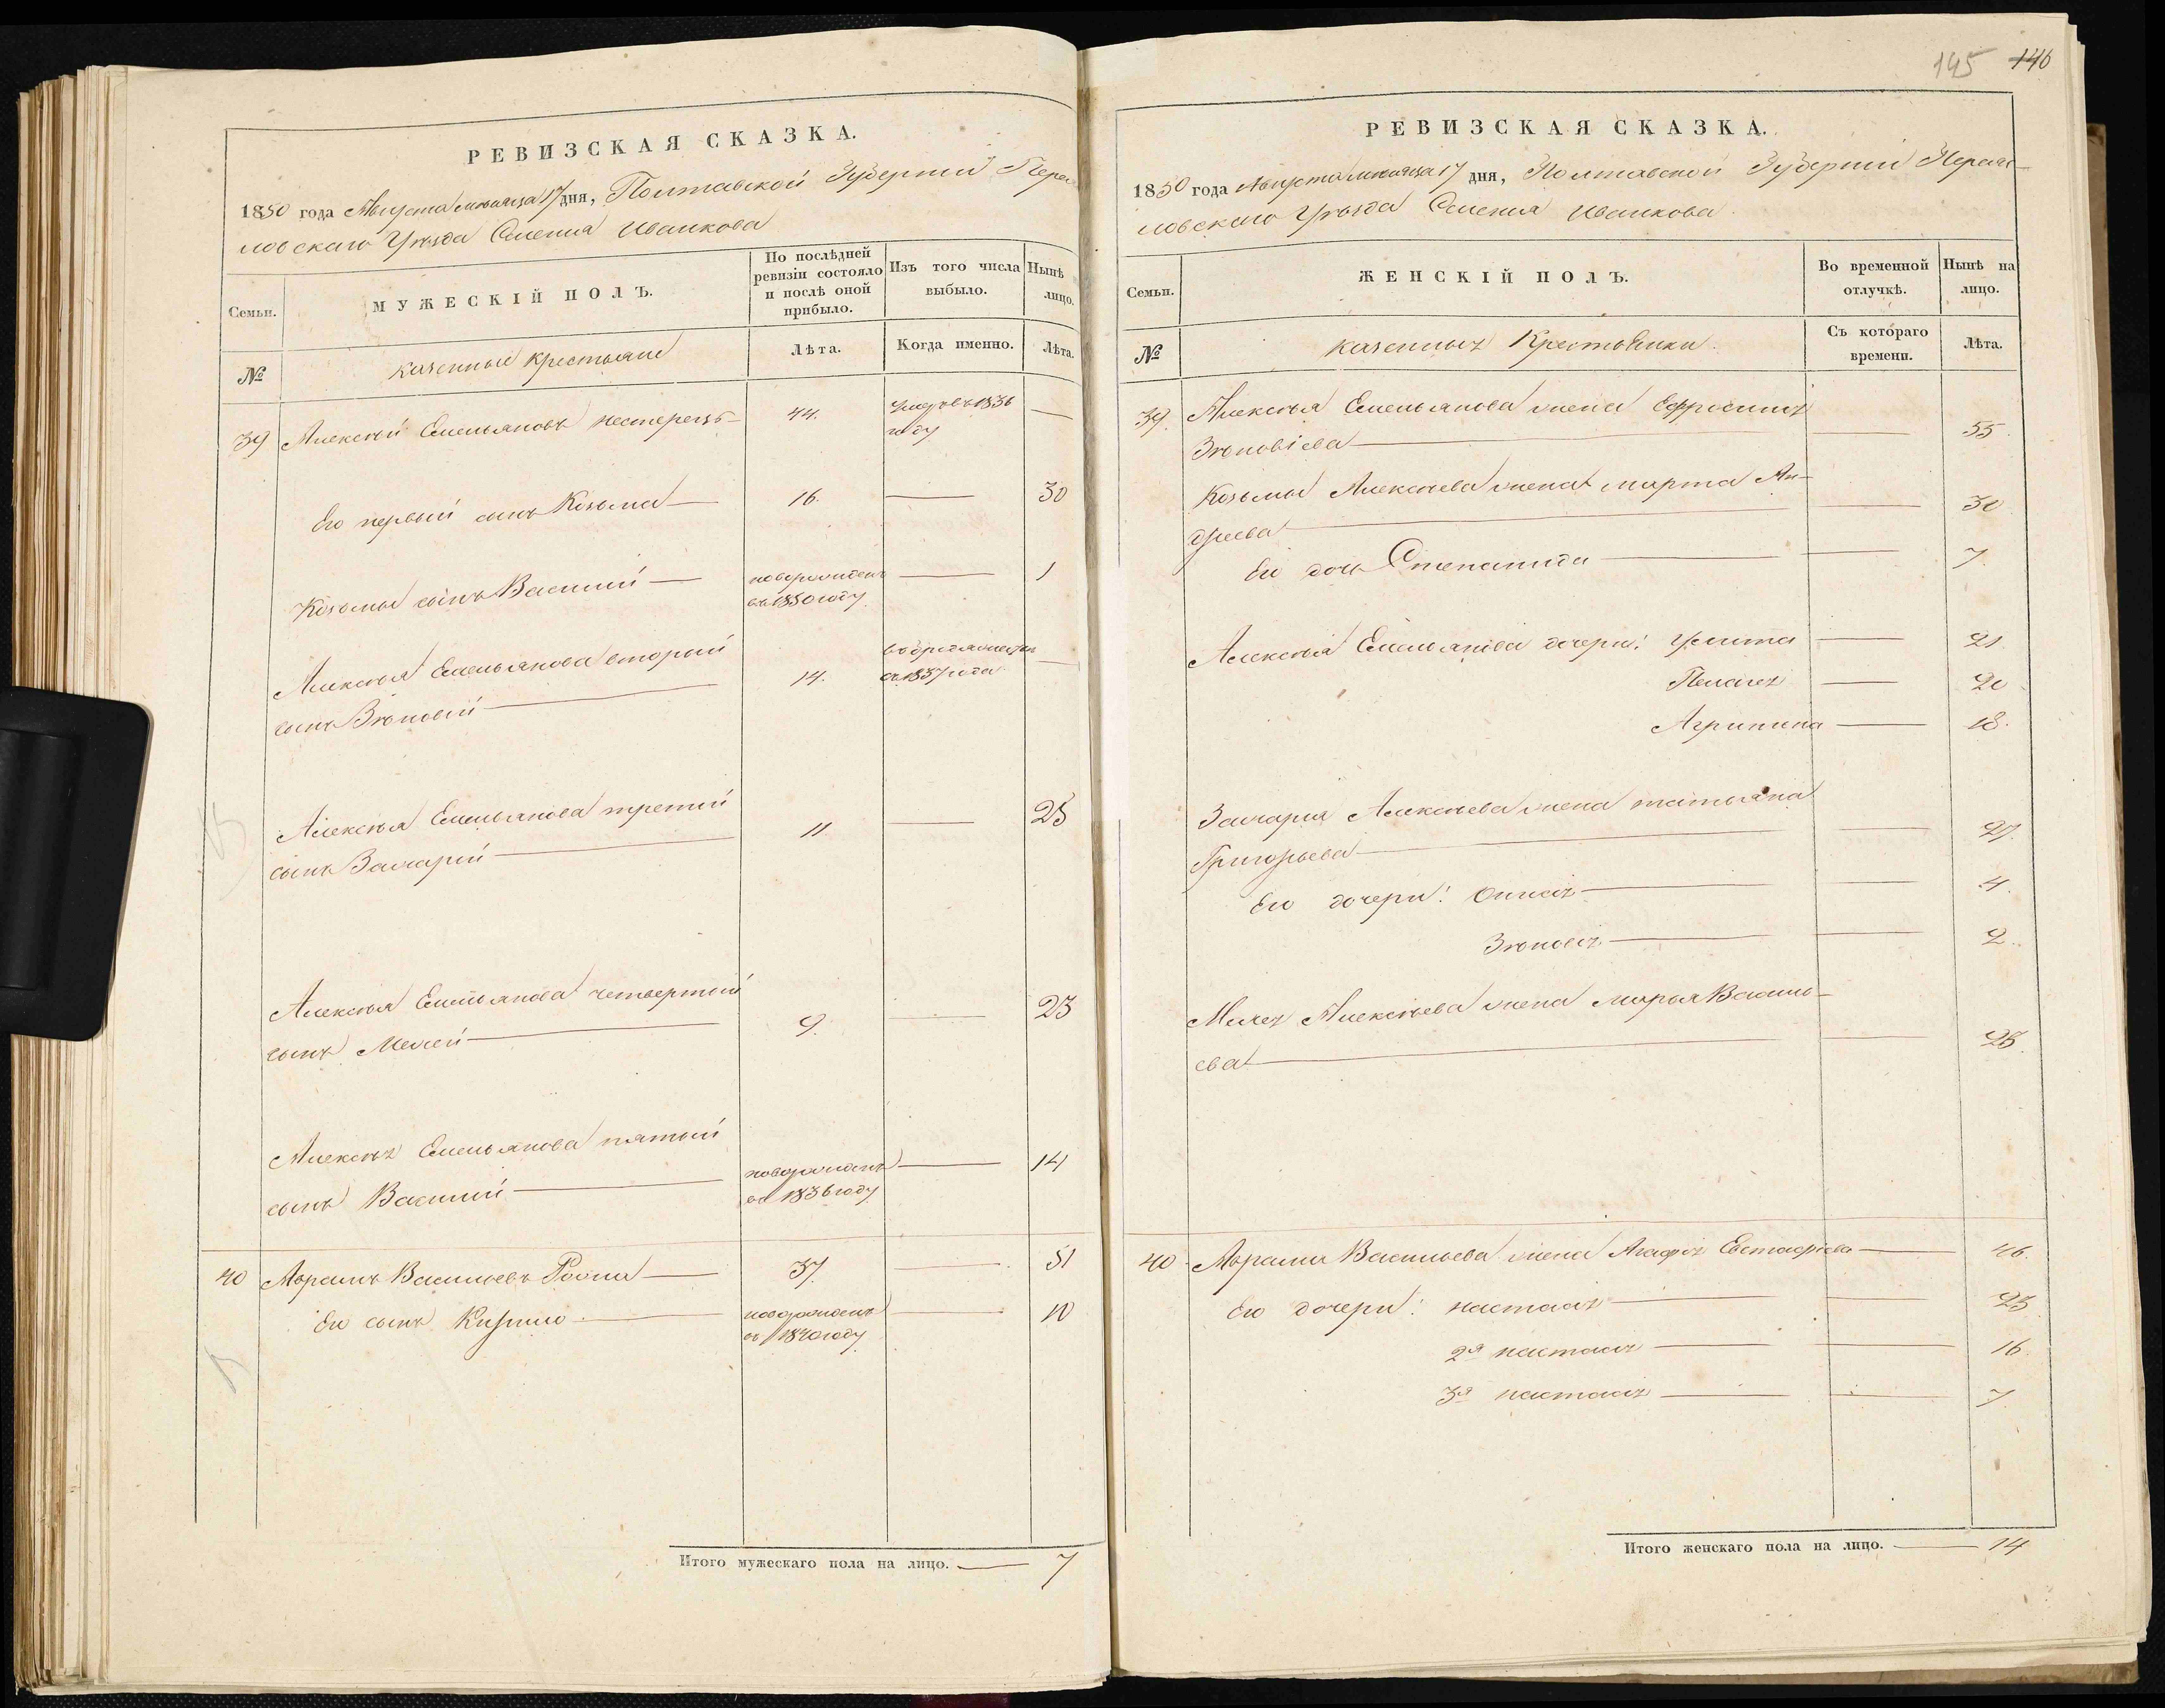 РЕВИЗСКАЯ СКАЗКА.
1850 года Августа месяца 17 дня, Полтавской Губернии Перея
ловскаго Уѣзда Селенія Иванкова
Семьи.
МУЖЕСКІЙ ПОЛЪ.
По послѣдней ревизіи состояло и послѣ оной прибыло.
Изъ того числа выбыло.
Нынѣ лицо.
№
казенные крестьяне
Лѣта.
Когда именно.
Лѣта.
39 Алексѣй Емельяновъ Нестерецъ — 44. умеръ въ 1836 —
году
Его первый сынъ Козьма — 16. — 30
Козьмы сынъ Василій — новорожденъ — 1
въ 1850 году
Алексѣя Емельянова второй
сынъ Зѣновій — 14. въ бродяжестве —
съ 1837 года
Алексѣя Емельянова третій
сынъ Захарій — 11. — 25
Алексѣя Емельянова четвертый
сынъ Мелей — 9. — 23
Алексѣя Емельянова пятый
сынъ Василій — новорожденъ — 14
въ 1836 году
40 Абрамъ Васильевъ — 37. — 51
Его сынъ Кирило — новорожденъ — 10
въ 1840 году
Итого мужескаго пола на лицо. — 7
145 146
РЕВИЗСКАЯ СКАЗКА.
1850 года Августа месяца 17 дня, Полтавской Губерніи Переяс-
ловскаго Уѣзда Селенія Иванкова
Семьи.
ЖЕНСКІЙ ПОЛЪ.
Во временной отлучкѣ.
Нынѣ на лицо.
№
казенныя Крестьянки.
Съ котораго времени.
Лѣта.
39. Алексѣя Емельянова жена Ефросинія
Зѣновіева — — 55.
Козьмы Алексѣева жена марта Ан-
дреева — — 30
Его дочь Степанида — — 7.
Алексѣя Емельянова дочери: Улита — 21
Пелагея — 20.
Агрипина — 18.
Захарія Алексѣева жена татьяна
Григорьева — — 27.
Его дочери: — — 4.
Зѣновія — — 2.
Мелея Алексѣева жена марья Василь-
ева — — 23.
40. Абрама Васильева жена Агафія Евстафіева — 46.
Его дочери: настасія — — 23
2я настасія — — 16
3я настасія — — 7
Итого женскаго пола на лицо. — 14